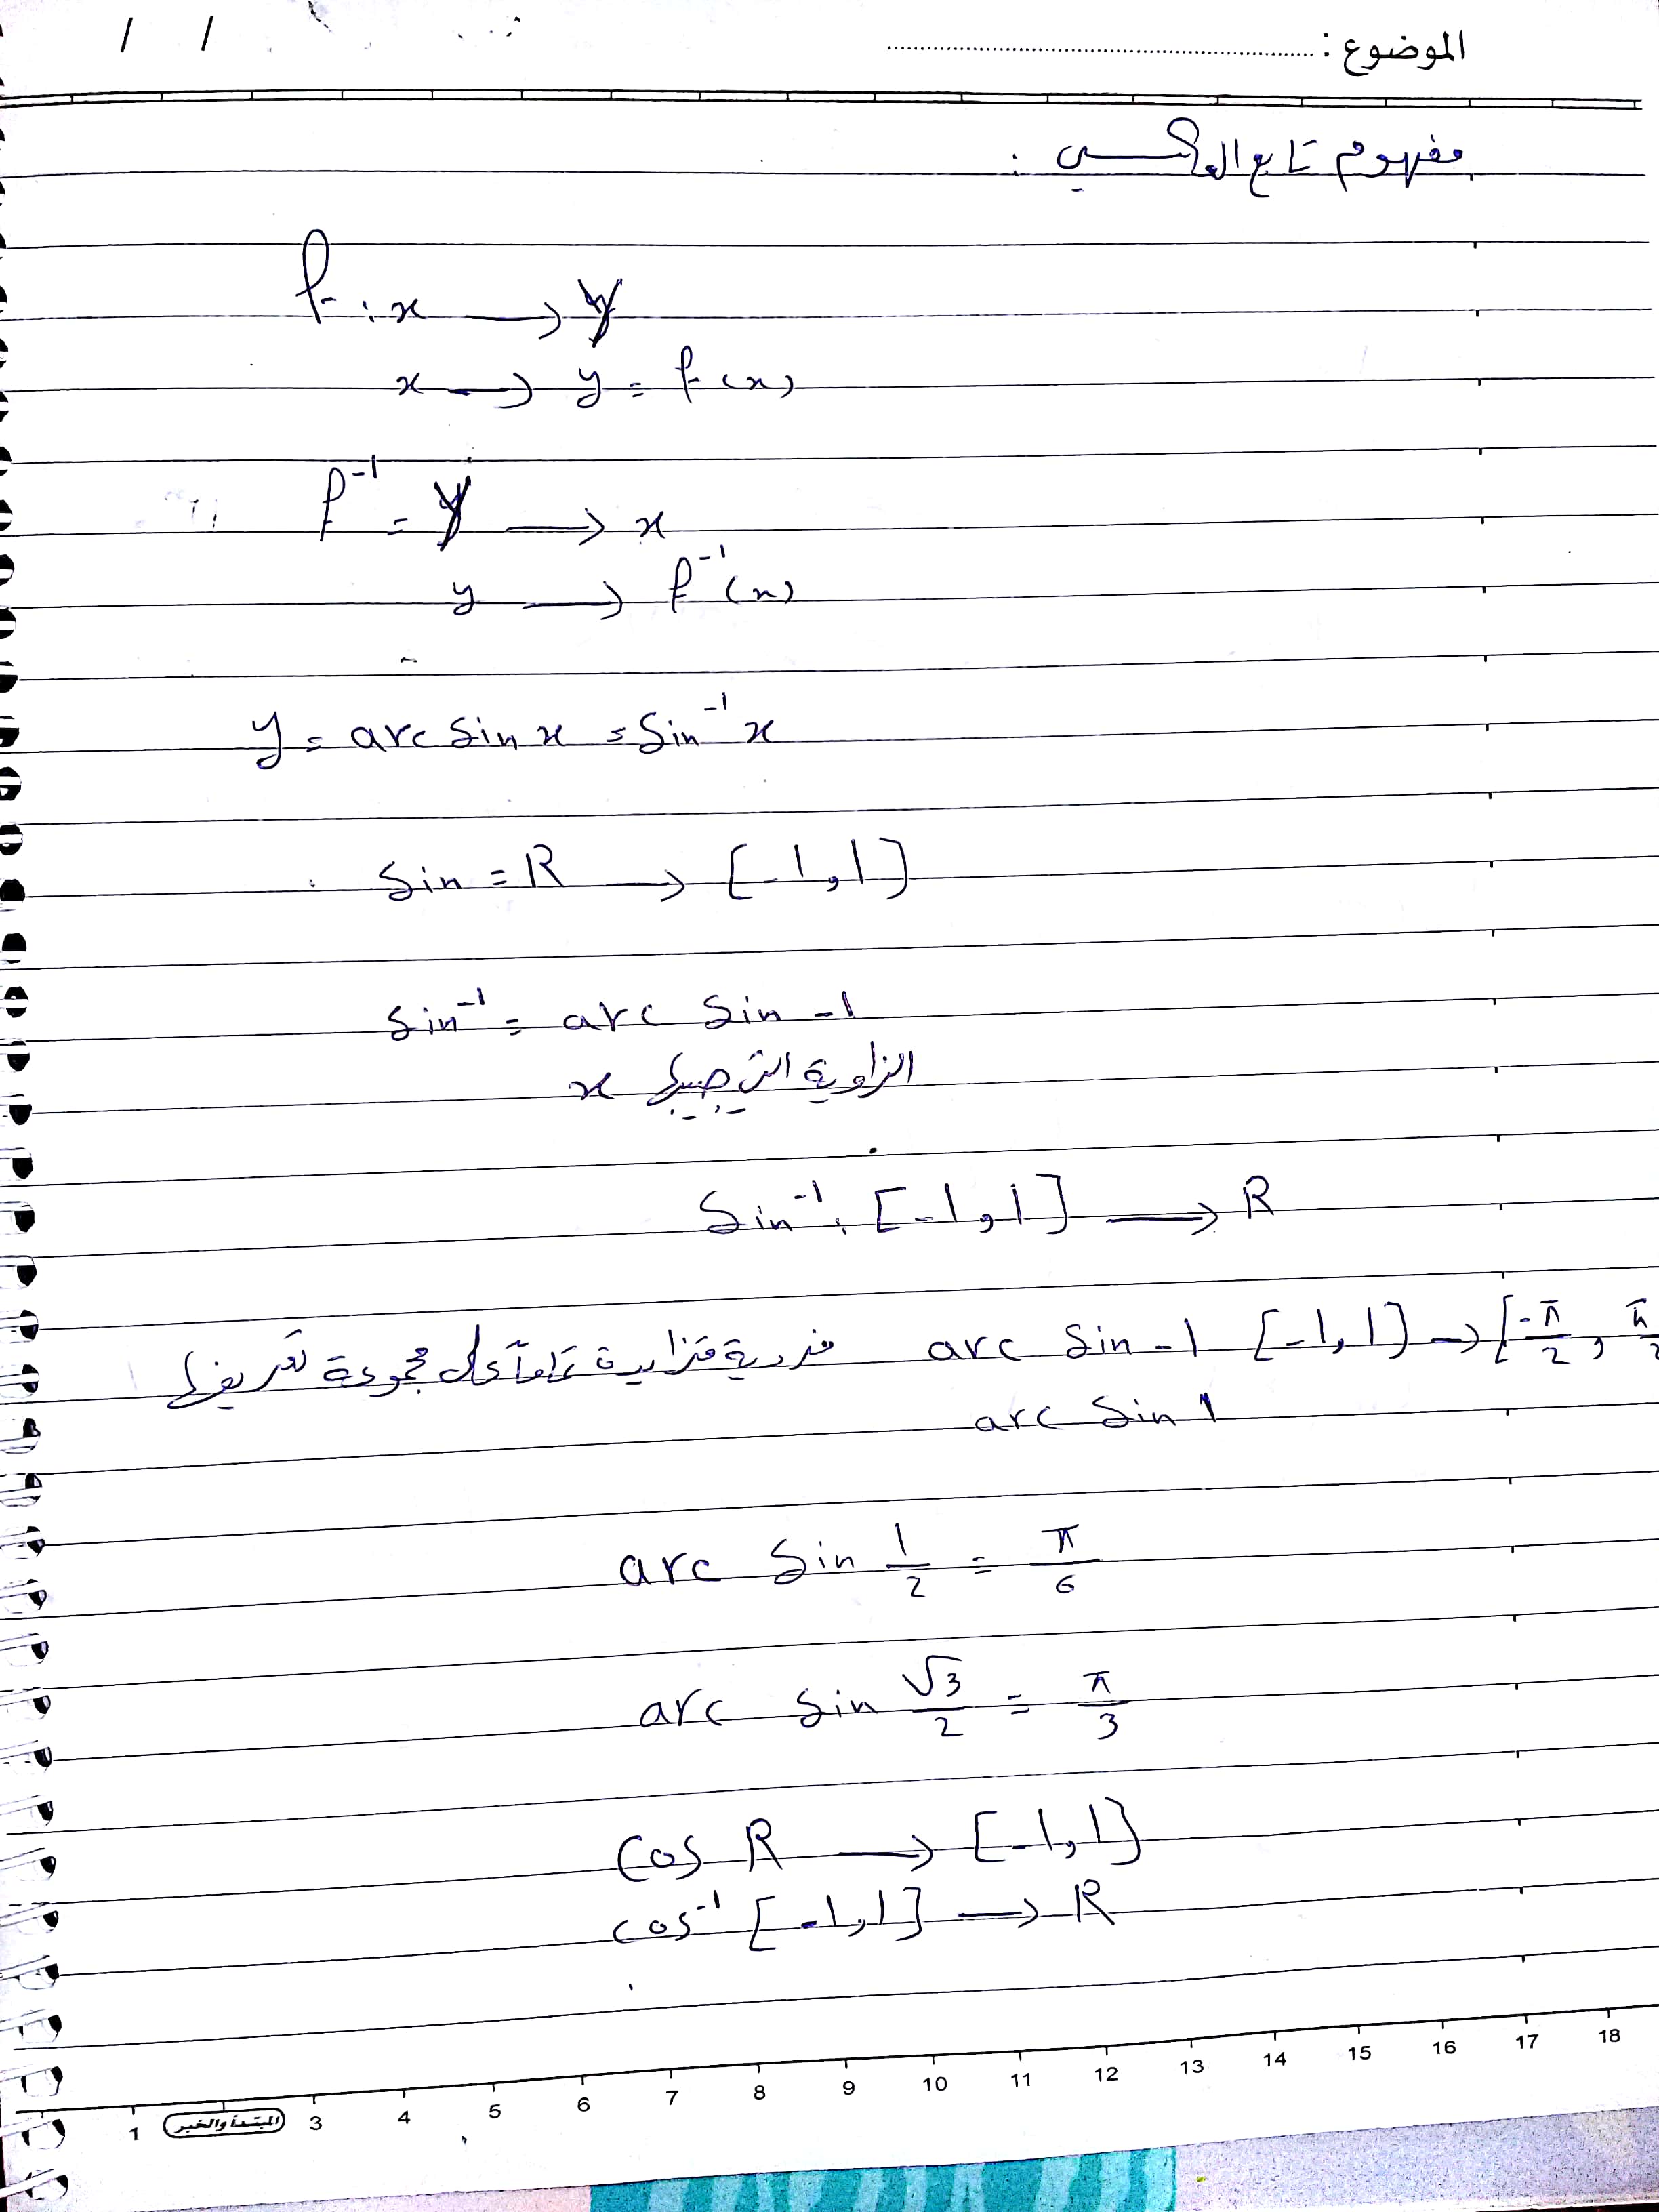 الموضوع : ..........
/ /
مفهوم تابع العكسي :
f : x → y
x → y = f(x)
f⁻¹ = y → x
y → f⁻¹(x)
y = arc sin x = sin⁻¹ x
sin = R → [-1,1]
sin⁻¹ = arc sin -1
الزاوية التي جيبها x
sin⁻¹ : [-1,1] → R
arc sin -1 [-1,1] → [-π/2 , π/2 فردية متزايدة تماماً على مجموعة تعريفها
arc sin 1
arc sin 1/2 = π/6
arc sin √3/2 = π/3
cos R → [-1,1]
cos⁻¹ [-1,1] → R
1 المبتدأ والخبر 3 4 5 6 7 8 9 10 11 12 13 14 15 16 17 18